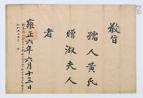 教旨
孺人黃氏
贈淑夫人
者
雍正六年六月十三日